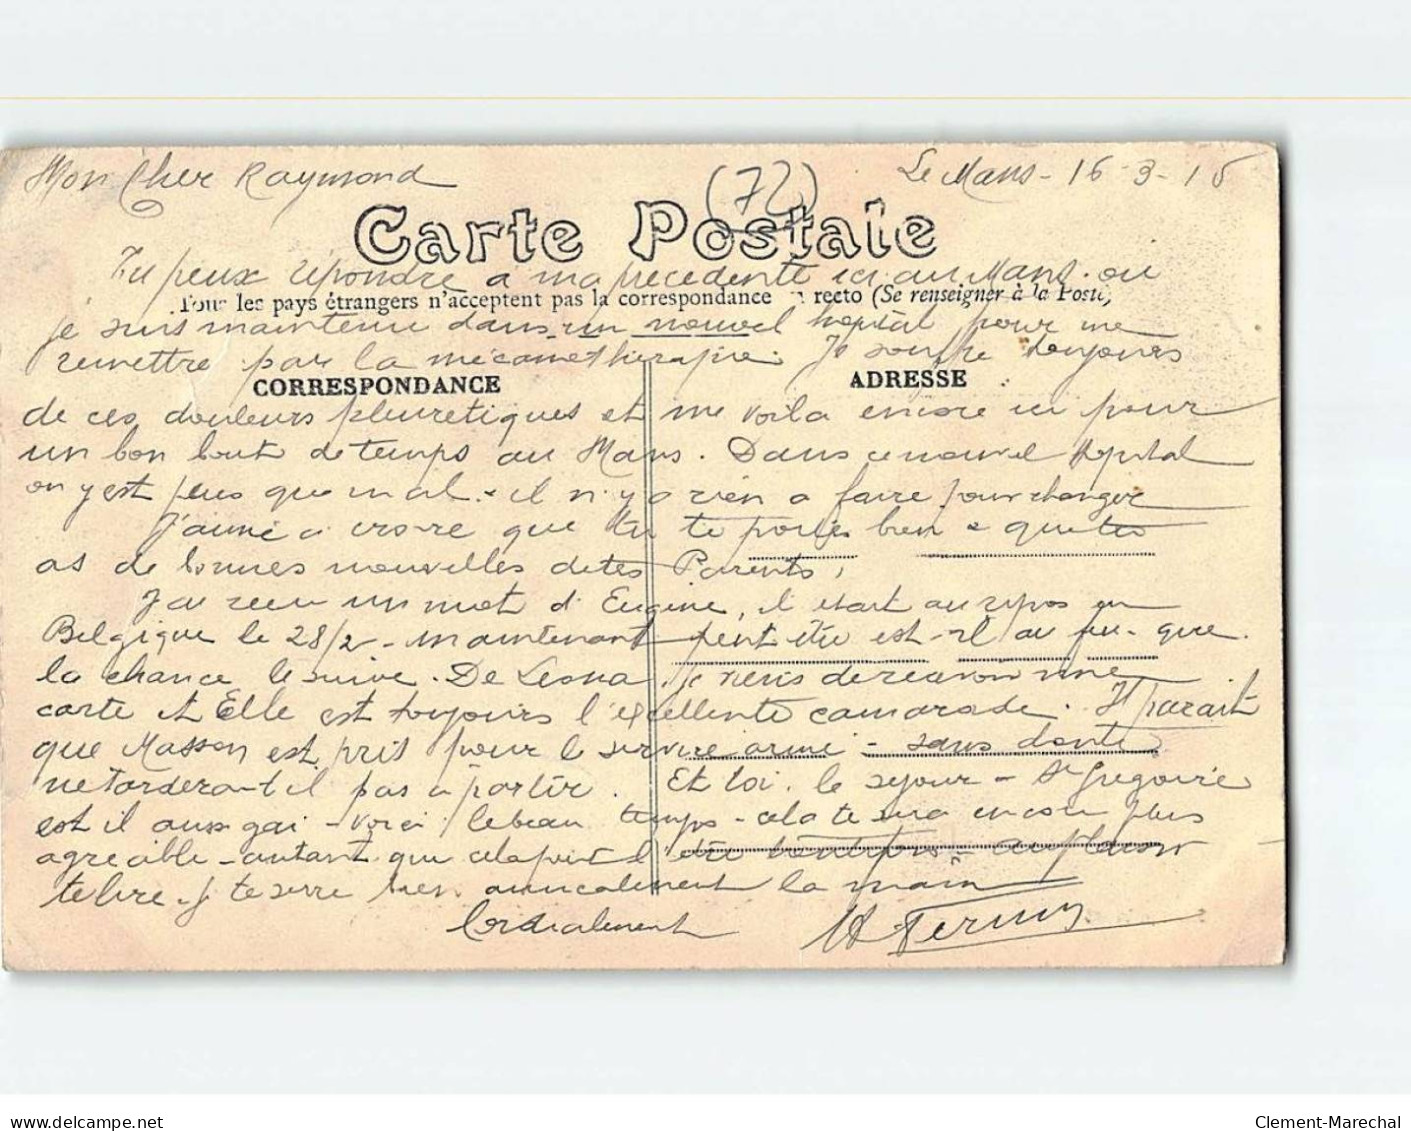 Mon Cher Raymond
(72)
Le Mans - 16-3-15
Carte Postale
Tu peux répondre a ma precedente ici au Mans. ou
Tous les pays étrangers n'acceptent pas la correspondance recto (Se renseigner à la Poste)
je suis maintenu dans un nouvel hopital pour me
remettre par la mécanothérapie. Je souffre toujours
CORRESPONDANCE
ADRESSE
de ces douleurs pluretiques et me voila encore ici pour
un bon bout de temps au Mans. Dans ce nouvel Hopital
on y est plus que mal. il n'y a rien a faire pour changer
J'aime a croire que tu te portes bien & que tu
as de bonnes nouvelles de tes Parents,
J'ai recu un mot d'Eugène, il etait au repos en
Belgique le 28/2 - maintenant peut être est-il au feu - que
la chance le suive. De Leona, je viens de recevoir une
carte et Elle est toujours l'excellente camarade. Il parait
que Masson est pris pour le service armé - sans doute
ne tardera-t-il pas a partir. Et toi. le sejour - St Gregoire
est il aussi gai - voici le beau temps - cela te sera encore plus
agreable - autant que cela peut l'être - au plaisir
te lire. Je te serre bien amicalement la main
Cordialement